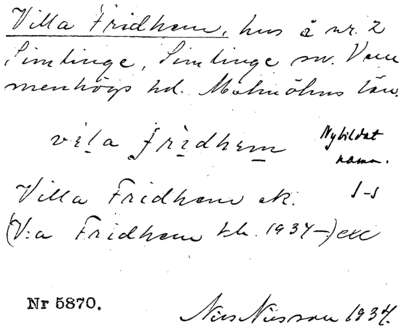 Villa Fridhem, hus å nr. 2
Simlinge, Simlinge sn. Vem
menhögs hd. Malmöhus län.
vila fridhem
Nybildat
namn.
Villa Fridhem ek.
(V:a Fridhem tel. 1934-)
Nr 5870.
Nils Nilsson 1934.